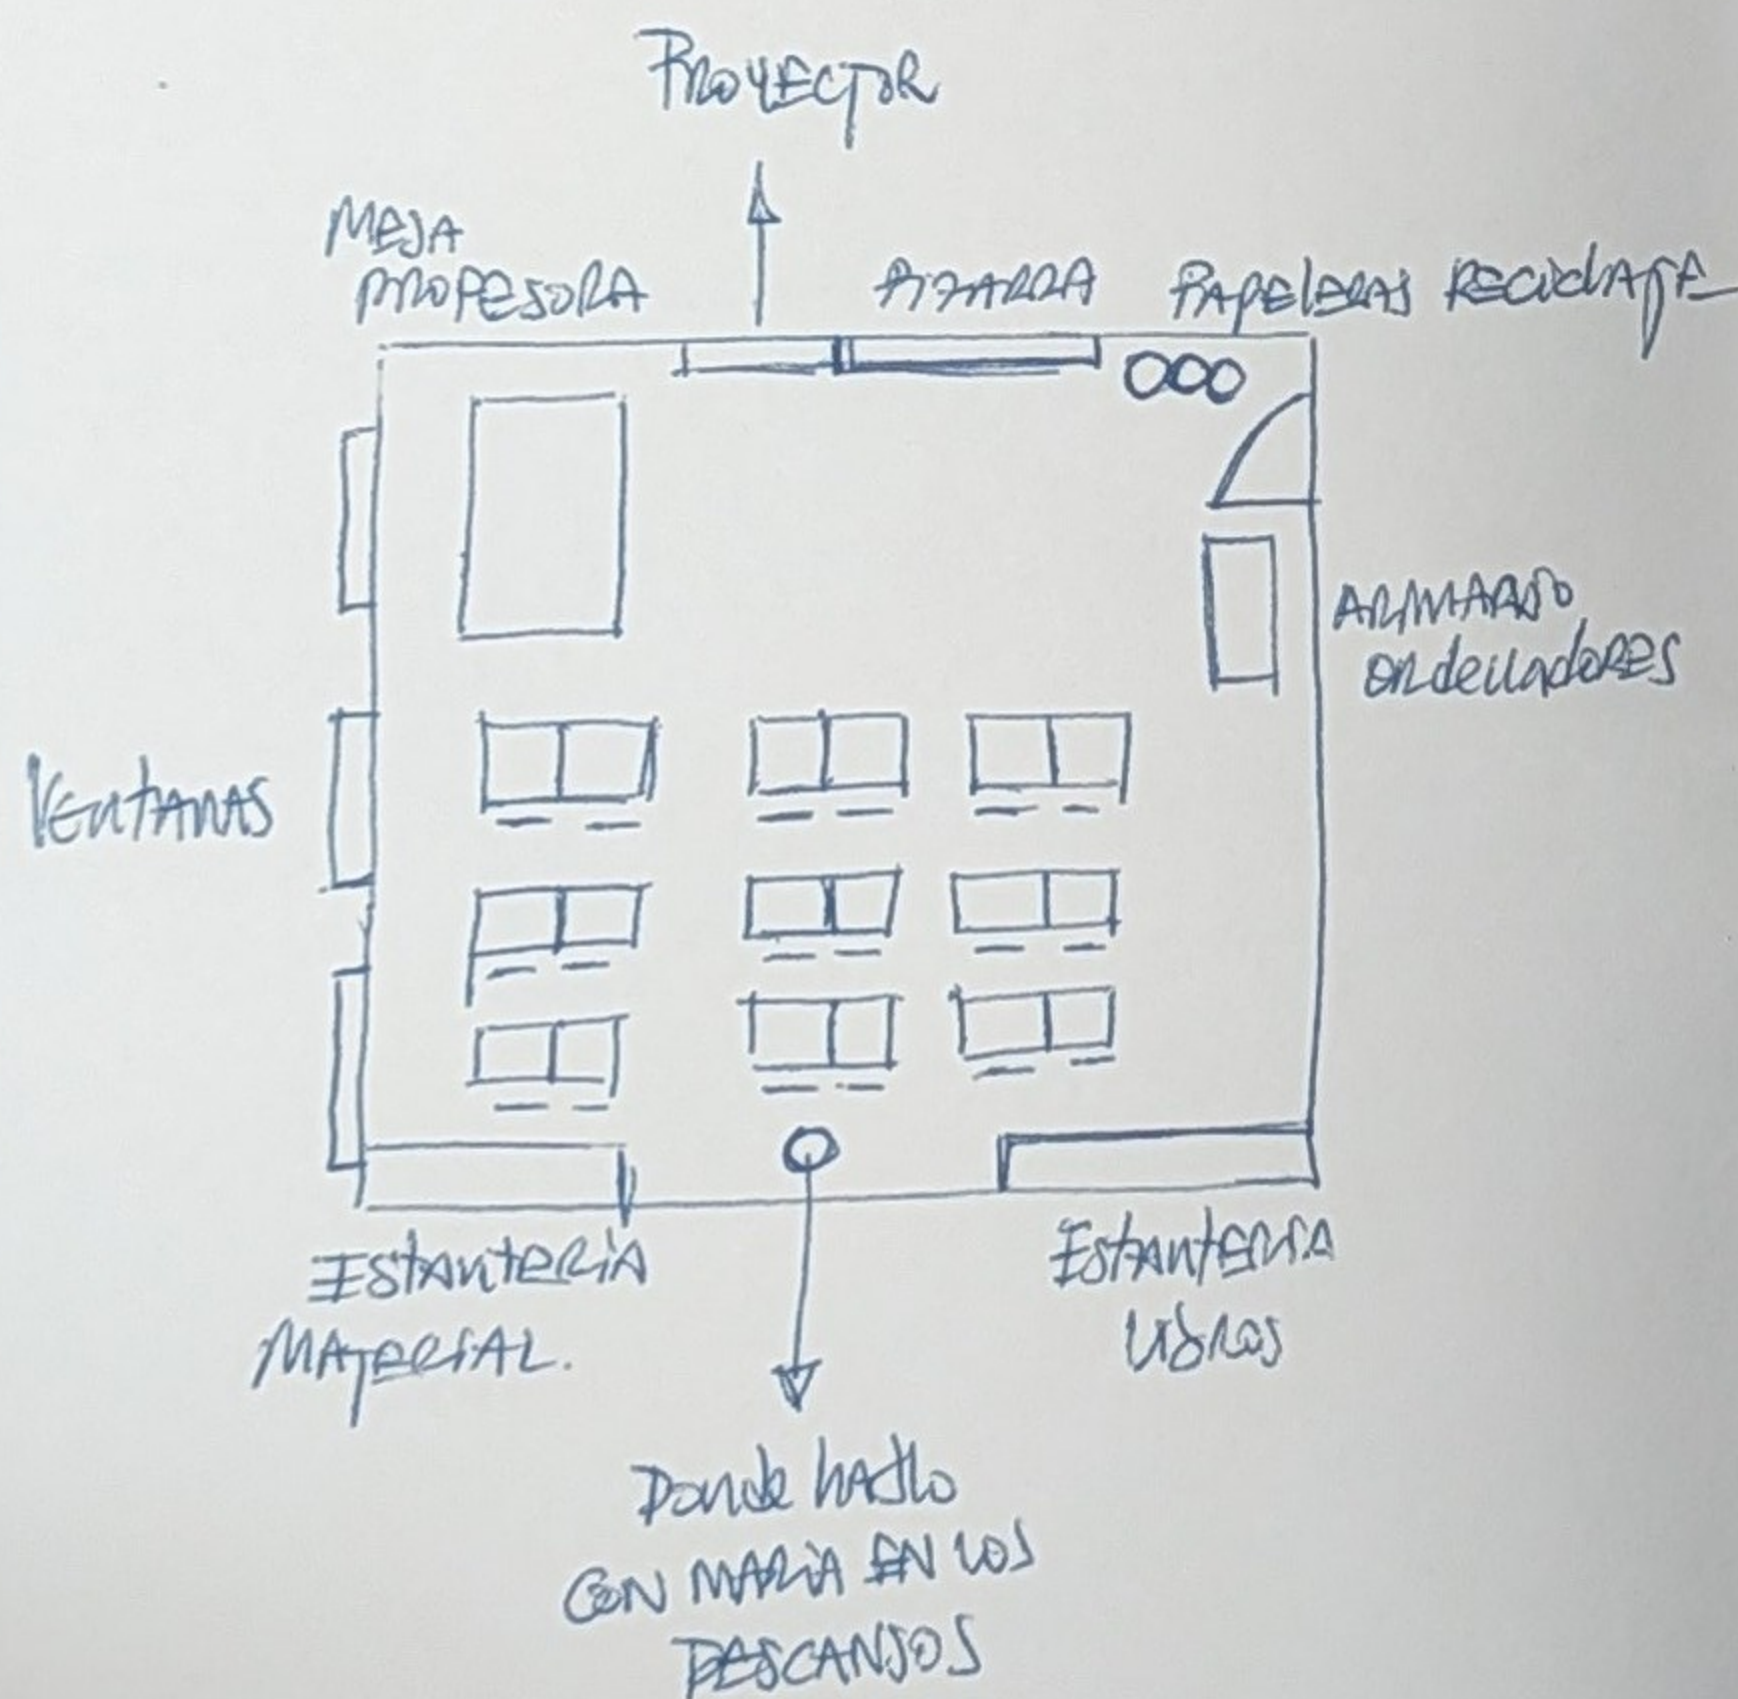 PROYECTOR
MESA
PROFESORA
PIZARRA
PAPELERAS RECICLAJE
ARMARIO
ORDENADORES
VENTANAS
ESTANTERIA
MATERIAL.
ESTANTERIA
LIBROS
DONDE HABLO
CON MARIA EN LOS
DESCANSOS